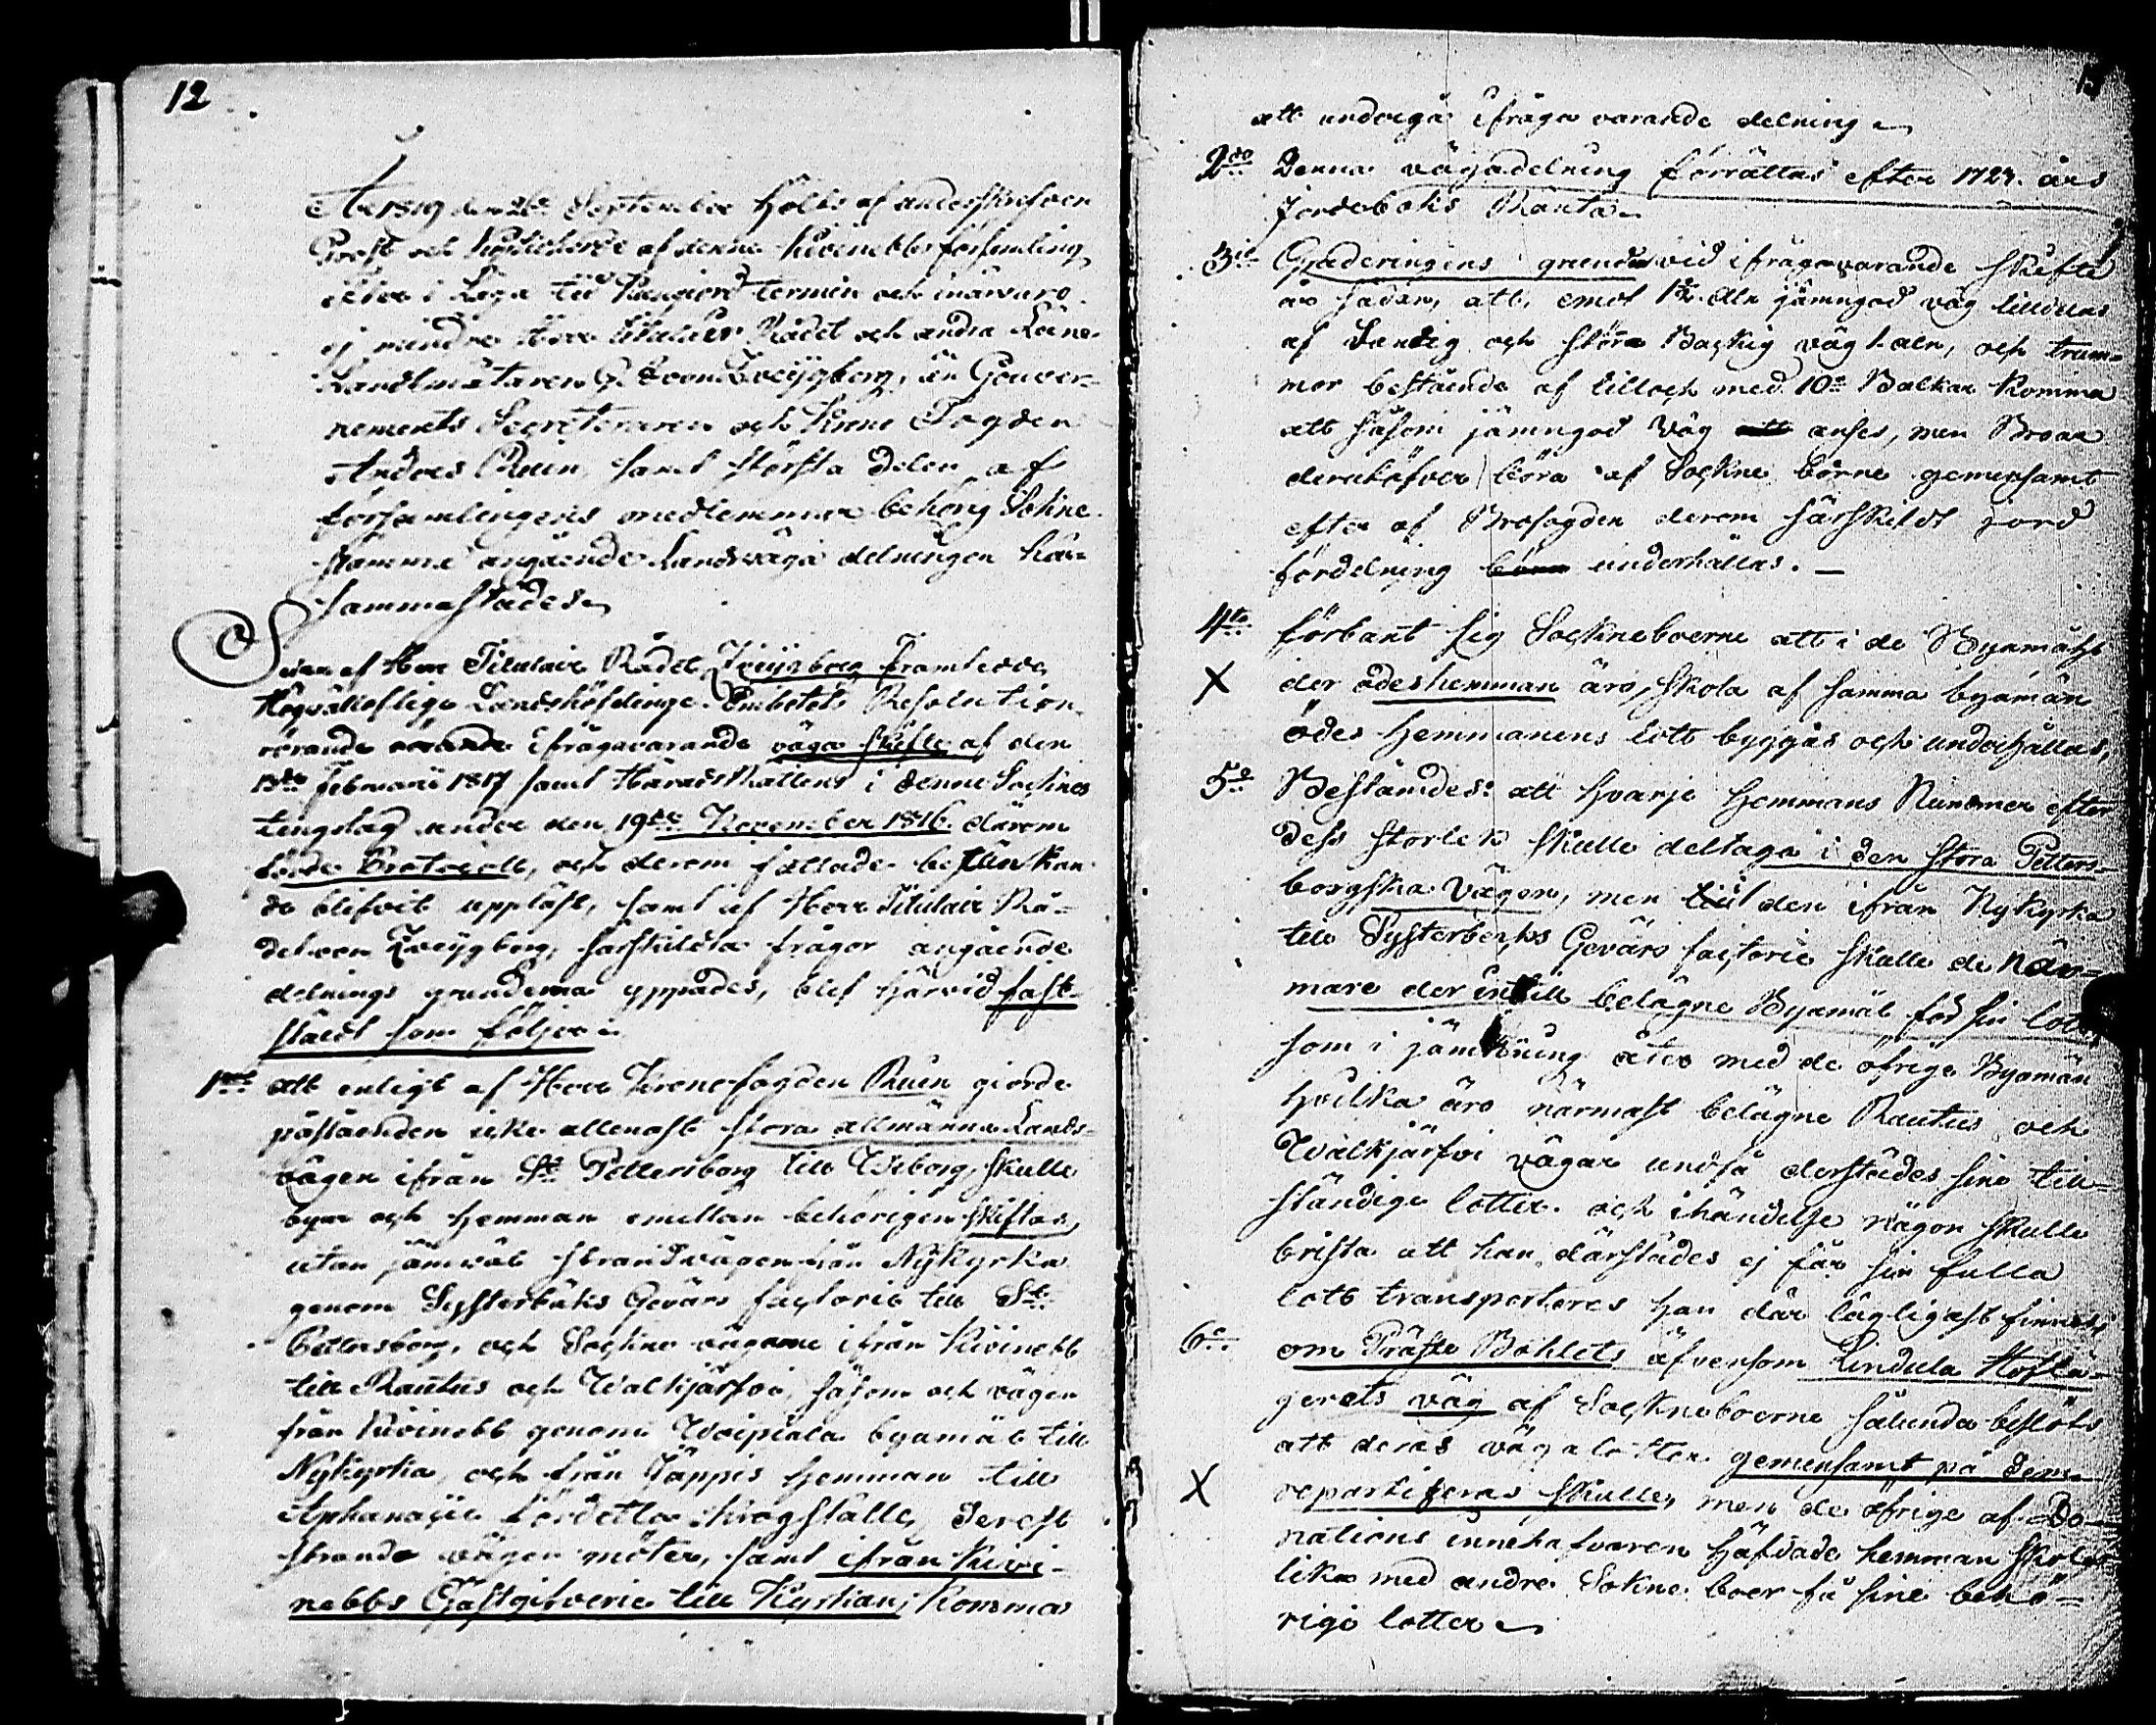 12
År 1819 den 26 September hölls af underskrifven
Prost och Kyrkoherde af denne Kivinebbs församling
efter i Laga tid kungjord termin och närvaro
ej mindre Herr Titulair Rådet och andra Läne
Landtmätaren G. von Zweygberg, än Gouver-
nements Secreteraren och Krono Fogden
Andres Ruin, samt största delen af
församlingens medlemmar behörig Sokne
stämma angående Landsväga delningen här-
sammastädes
Sedan af Herr Titulair Rådet Zweygberg framtedde
Högvälloflige Landshöfdinge Embetets Resolution
rörande varande ifrågavarande väga skifte af den
13de Februarii 1817 samt HäradsRättens i denne Sochnes
tingslag under den 19de November 1816. därom
förde Protocoll, och derom fattade beslut kun
de blifvit uppläst, samt af Herr Titulair Rå-
det von Zweygberg, särskildta frågor angående
delnings grunderna yppades, blef härvid fast-
stäldt som följer
1mo att enligt af Herr Kronofogden Ruin giorde
påståenden icke allenast stora allmänna Lands-
vägen ifrån St Pettersborg till Wiborg, skulle
byar och hemman emellan behörigen skiftas,
utan jämväl strandvägen från Nykyrka
genom Systerbäks Gevärs factorie till St
Pettersborg, och Sochne vägarne ifrån Kivinebb
till Rautus och Walkjärfvi, såsom och vägen
från Kivinebb genom Woipiala byamäl till
Nykyrka, och från Jäppis hemman till
Aphanasie fordetta krogställe, derest
strande vägen möter, samt ifrån Kivi-
nebbs Gästgifverie till Kyrkian, komma
att undergå ifråga varande delning
2do Denna vägadelning förrättas efter 1724. års
Jordeboks Ränta
3io Graderingens grunder vid ifrågavarande skifte
är sådan, att, emot 1½ aln jämngod väg tilldelas
af Sandig och större Backig väg 1 aln, och trum-
mor bestående af till och med 10 Balkar komma
att såsom jämngod Väg att anses, men Broar
derutöfver böra af Sockne boerne gemensamt
efter af Brofogden derom särskildt jord
fördelning böra underhållas. —
4to förbant sig Sockneboerne att i de Byamähl
X der ödeshemman äro, skola af samma byamän
ödes Hemmanens lott byggas och underhållas,
5o Bestämdes: att hvarje Hemmans Nummer efter
dess storlek skulle deltaga i den stora Petters-
borgska Vägen, men till den ifrån Nykyrka
till Systerbecks Gevärs factorie skulle de när-
mare der intill belägne Byamäl få sin lott
som i jämkning åter med de öfrige Byamän
hvilka äro närmast belägne Rautus och
Walkjärfvi vägar undfå derstädes sine till-
ständige lotter. och ihändelse någon skulle
brista att han därstädes ej får sin fulla
lott transporteras han där lägligast finnes,
6o om Präste Bohlets äfvensom Lindula Hoflä-
gerets väg af Sockneboerne sålunda beslöts
att deras vägalotter gemensamt på dem
X repartiseras skulle, men de öfrige af Do-
nations innehafvaren häfdade hemman skola
lika med andre Sokne boer få sine behö-
rige lotter